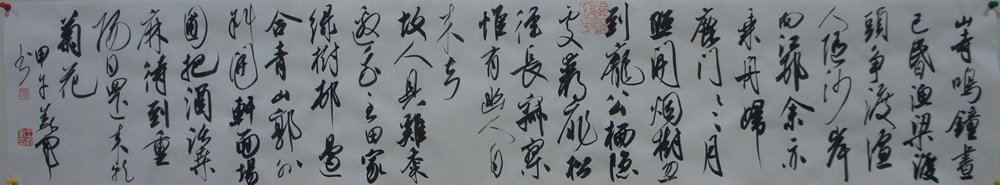 山寺鳴鐘晝
已昏渔梁渡
頭争渡喧
人随沙岸
向江邨余亦
乘舟歸
鹿门月
照開烟樹忽
到龐公栖隐
处岩扉松
徑長寂寥
惟有幽人自
来去
故人具雞黍
邀我至田家
绿樹邨邊
合青山郭外
斜開軒面場
圃把酒話桑
麻待到重
陽日還来就
菊花
甲午
书